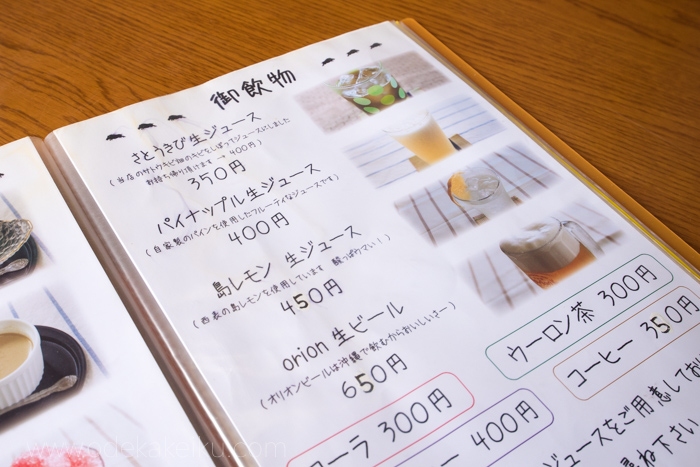 御飲物
さとうきび 生ジュース
(当店のサトウキビ畑のキビをしぼってジュースにしました
お持ち帰り頂けます → 400円)
350円
パイナップル 生ジュース
(自家製のパインを使用したフルーティなジュースです)
400円
島レモン 生ジュース
(西表の島レモンを使用しています 酸っぱりてい!)
450円
orion 生ビール
(オリオンビールは沖縄で飲むからおいしいさー)
650円
ウーロン茶 300円
コーヒー 350円
コーラ 300円
ー 400円
ジュースをご用意してお
ね下さい